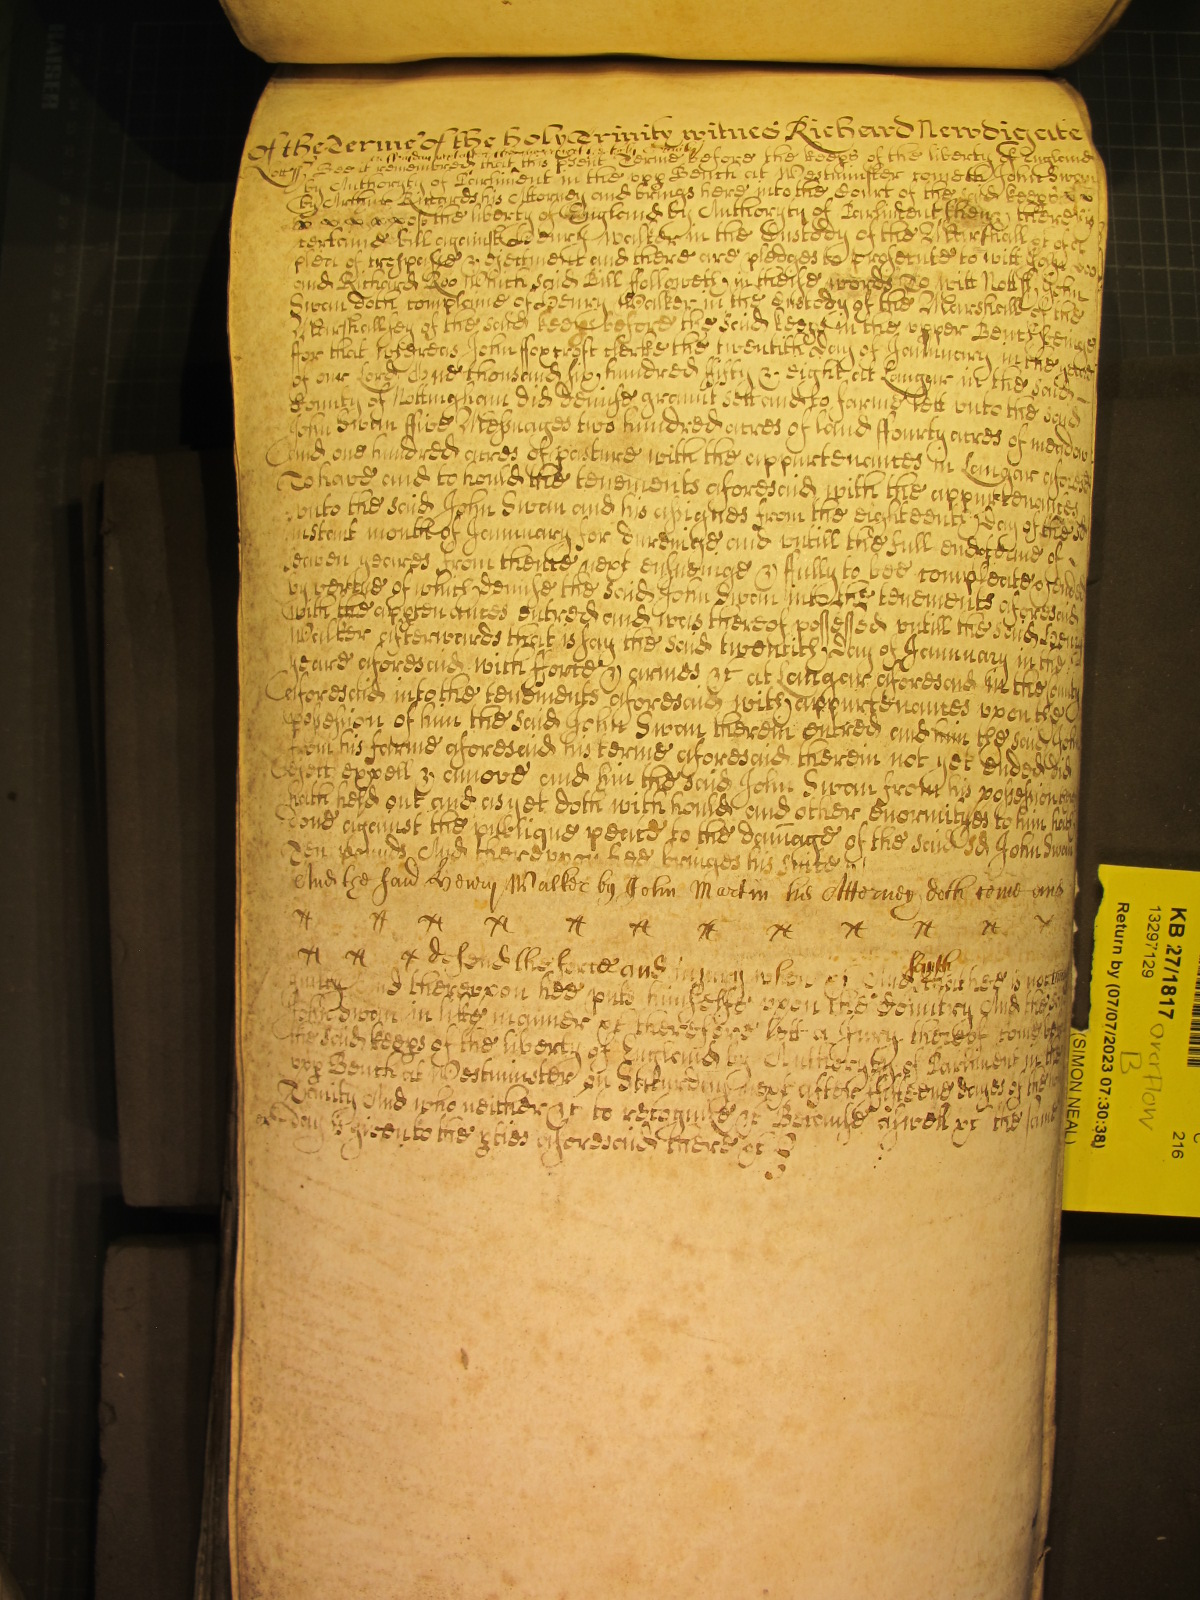 Of the Terme of the holy Trinity witnes Richard Newdigate
Nott ss Bee it remembred that this psent Terme before the keeps of the liberty of England
by Authoryty of Parliament in the upp Bench at Westminster cometh John Swan
by Arthur Rickards his Attorney and brings here into the Court of the said keeps
of the liberty of England by Authoryty of Parliament then there his
certaine bill against Henry Walker in the Custody of the Marshall &c of a
plea of trespasse & ejectment and there are pledges to prosecute to witt John Doo
and Richard Roo Which said Bill followeth in theise words To witt Nott ss John
Swan doth complaine of Henry Walker in the Custody of the Marshall of the
Marshallsey of the said keeps before the said keeps in the upper Bench beinge
ffor that whereas John ffoxcroft clerke the twentith day of Jannuary in the yeare
of our Lord One thousand six hundred fifty & eight att Langar in the said
County of Nottingham did demise graunt sett and to farme lett unto the said
John Swan ffive Messuages two hundred acres of land ffourty acres of meadow
and one hundred acres of pasture with the appurtenances in Langar aforesaid
To have and to hould the tenements aforesaid with the appurtenances
unto the said John Swan and his assignes from the eighteenth day of the sd
instant month of Jannuary for dureinge and untill the full end & terme of
seaven yeares from thence next ensueinge & fully to bee compleate & ended
by vertue of which demise the said John Swan into the tenements aforesaid
with the apptenances entred and was thereof possessed untill the said Henry
Walker afterwards that is say the said twentith day of Jannuary in the
yeare aforesaid with fforce & armes &c at Langar aforesaid in the county
aforesaid into the tenements aforesaid with appurtenances upon the
possession of him the said John Swan therein entred and him the said John
from his farme aforesaid his terme aforesaid therein not yet ended did
eject expell & amove and him the said John Swan from his possession
hath held out and as yet doth with hould and other enormityes to him hath
done against the publique peace to the damage of the said John Swan
Ten pounds And thereupon hee bringes his suite &c
And the said Henry Walker by John Martin his Attorney doth come and
defend the force and injury when &c And saith that hee is not
guilty And thereupon hee puts himselfe upon the Countrey And the sd
John Swan in like manner &c therefore lett a Jury thereof come before
the said keeps of the liberty of England by Authoryty of Parliament in the
upp Bench at Westminster on Saturday next after fifteene dayes of the holy
Trinity And who neither &c to recognize &c Because aswell &c the same
day is given to the pties aforesaid there &c
KB 27/1817
13297129
Return by (07/07/2023 07:30:38)
(SIMON NEAL)
overflow
B
216